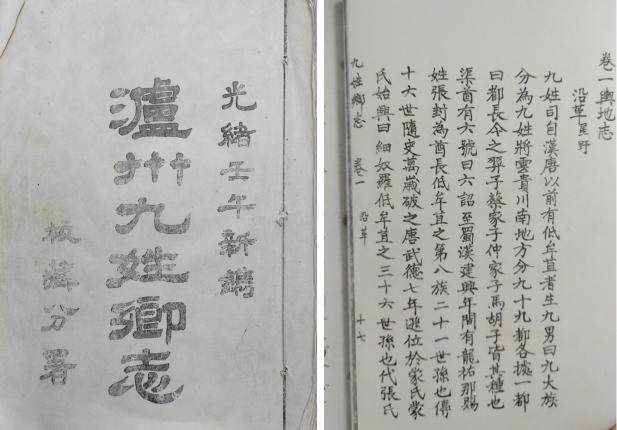 光緒壬午新鐫
瀘州九姓鄉志
板藏分署
卷一輿地志
沿革 星野
九姓司自漢唐以前有低牟苴者生九男曰九大族
分為九姓將雲貴川南地方分九十九都各據一都
曰都長今之羿子蔡家子仲家子馬胡子皆其種也
渠酋有六號曰六詔至蜀漢建興年間有龍祐那賜
姓張封為酋長低牟苴之第八族二十一世孫也傳
十六世隨史萬歲破之唐武德七年遜位於蒙氏蒙
氏始興曰細奴羅低牟苴之三十六世孫也代張氏
九姓鄉志 卷一 沿革 十七